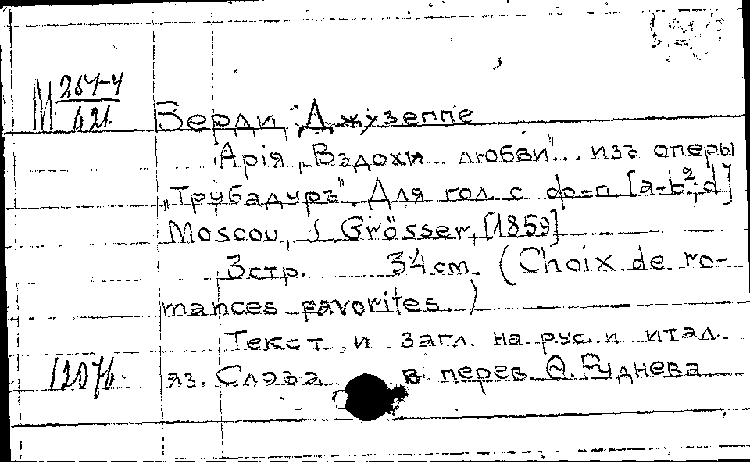 М 264-4
421
Верди, Джузеппе
Арія „Вздохи любви"... изъ оперы
„Трубадуръ". Для гол. с фо-п [a-b²; d]
Moscou, J. Grösser, [1859]
3 стр. 34 cm. (Choix de ro-
mances favorites.)
Текст и загл. на рус. и итал.
12076 яз. Слова в перев. Ѳ. Руднева